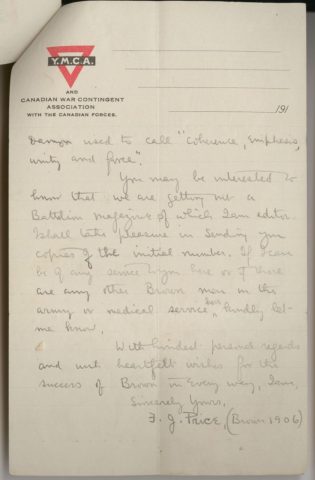 Y.M.C.A.
AND
CANADIAN WAR CONTINGENT
ASSOCIATION
WITH THE CANADIAN FORCES.
191
used to call "Coherence, Emphasis,
unity and force".
You may be interested to
know that we are getting out a
Battalion magazine of which I am editor.
I shall take pleasure in sending you
copies of the initial number. If I can
be of any service to you here or if there
are any other Brown men in the
army or medical service, kindly let
me know.
With kindest personal regards
and with heartfelt wishes for the
success of Brown in every way, I am,
Sincerely Yours,
J. Price, (Brown 1906)